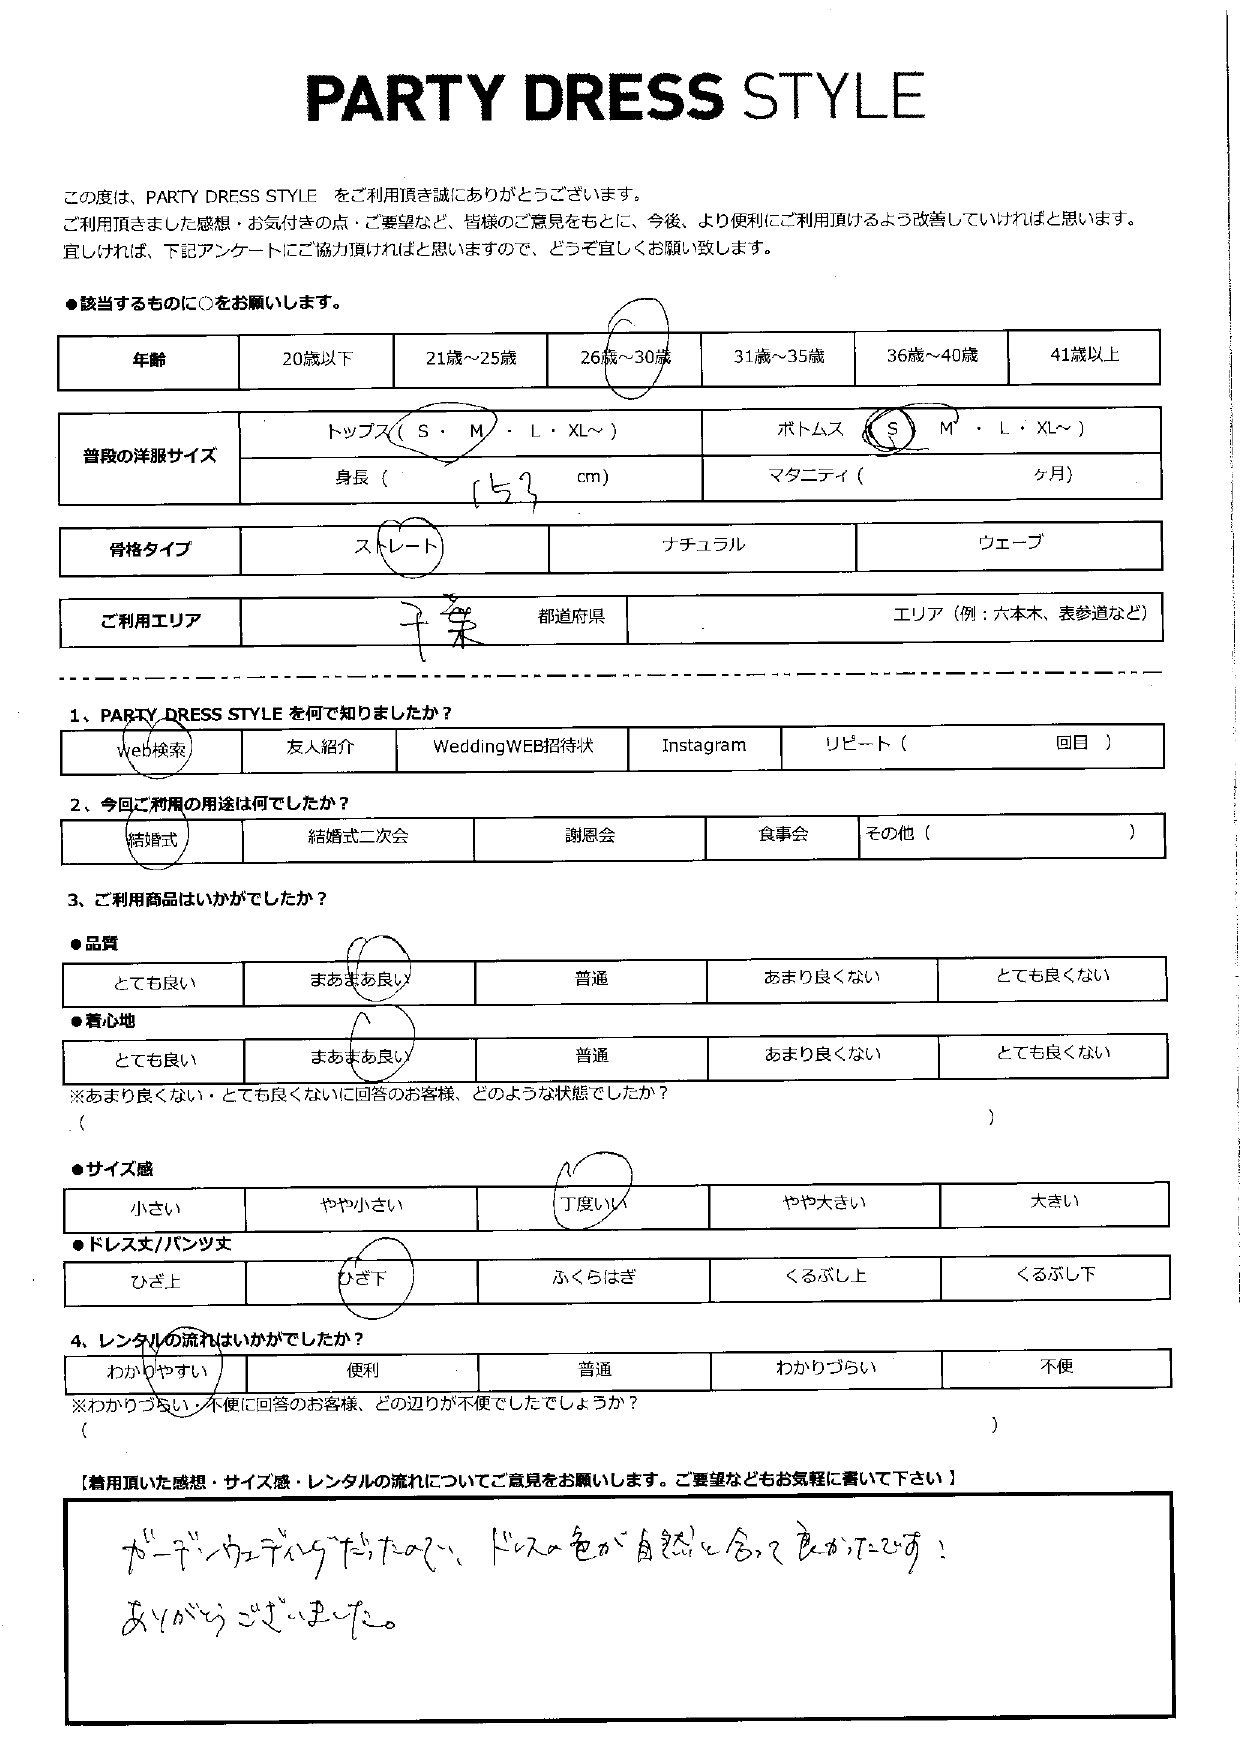 PARTY DRESS STYLE
この度は、PARTY DRESS STYLE をご利用頂き誠にありがとうございます。
ご利用頂きました感想・お気付きの点・ご要望など、皆様のご意見をもとに、今後、より便利にご利用頂けるよう改善していければと思います。
宜しければ、下記アンケートにご協力頂ければと思いますので、どうぞ宜しくお願い致します。
●該当するものに○をお願いします。
年齢 20歳以下 21歳～25歳 26歳～30歳 31歳～35歳 36歳～40歳 41歳以上
普段の洋服サイズ トップス( S ・ M ・ L ・ XL～ ) ボトムス ( S M ・ L ・ XL～ )
身長 ( 153 cm) マタニティ ( ヶ月)
骨格タイプ ストレート ナチュラル ウェーブ
ご利用エリア 千葉 都道府県 エリア（例：六本木、表参道など）
1、PARTY DRESS STYLE を何で知りましたか？
Web検索 友人紹介 WeddingWEB招待状 Instagram リピート ( 回目 )
2、今回ご利用の用途は何でしたか？
結婚式 結婚式二次会 謝恩会 食事会 その他 ( )
3、ご利用商品はいかがでしたか？
●品質
とても良い まあまあ良い 普通 あまり良くない とても良くない
●着心地
とても良い まあまあ良い 普通 あまり良くない とても良くない
※あまり良くない・とても良くないに回答のお客様、どのような状態でしたか？
( )
●サイズ感
小さい やや小さい 丁度いい やや大きい 大きい
●ドレス丈/パンツ丈
ひざ上 ひざ下 ふくらはぎ くるぶし上 くるぶし下
4、レンタルの流れはいかがでしたか？
わかりやすい 便利 普通 わかりづらい 不便
※わかりづらい・不便に回答のお客様、どの辺りが不便でしたでしょうか？
( )
【着用頂いた感想・サイズ感・レンタルの流れについてご意見をお願いします。ご要望などもお気軽に書いて下さい】
ガーデンウェディングだったので、ドレスの色が自然と合って良かったです！
ありがとうございました。